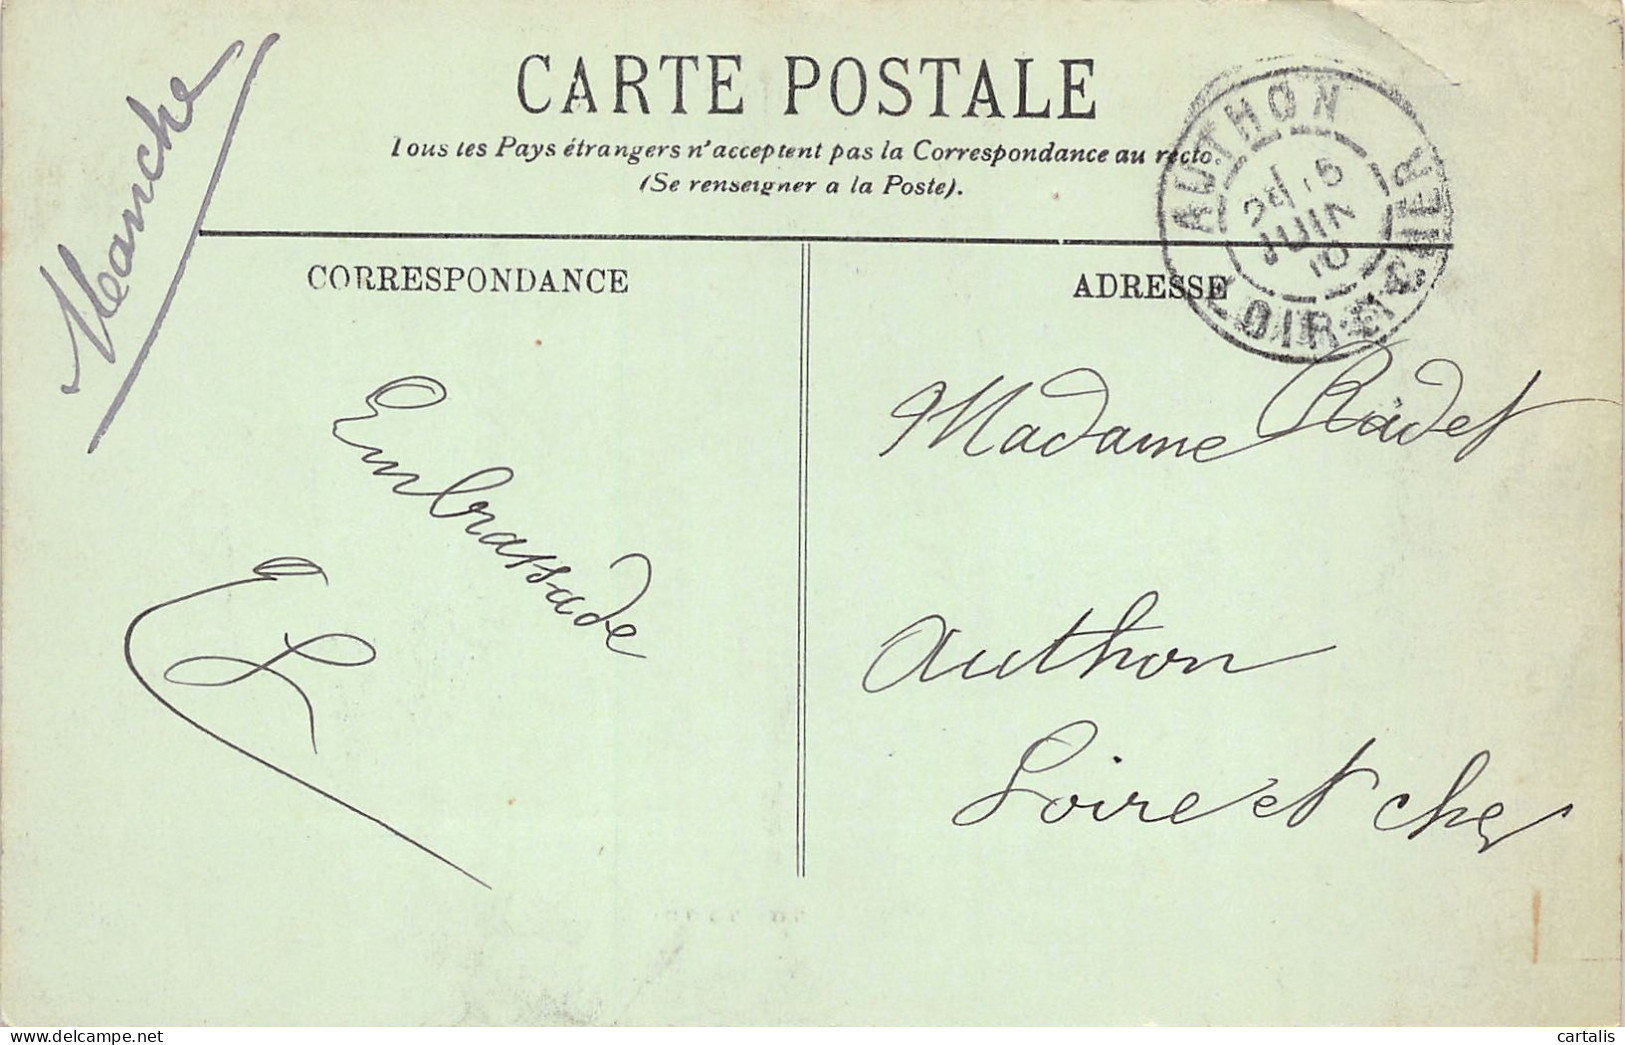 Manche
CARTE POSTALE
Tous les Pays étrangers n'acceptent pas la Correspondance au recto.
(Se renseigner a la Poste).
AUTHON
JUIN
10
LOIR-&-CHER
CORRESPONDANCE
ADRESSE
Embrassade
L
Madame Radet
Authon
Loire et Cher
cartalis